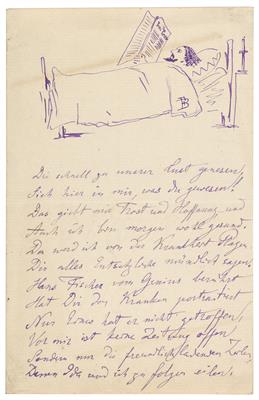 Die schnell zu unserer Lust genesen,
Sich hier in mir, was Du gewesen!
Das giebt mir Trost und Hoffnung und
Auch ich bin morgen wohl gesund.
Da werd ich von der Krankheit Plagen
Dir alles mündlich sagen.
Hans Fischer vom Genius berührt
Hat Dir den Kranken portraitirt
Nur Eines hat er nicht getroffen,
Vor mir ist keine Zeitung offen
Sondern nur die freundlich ladenden Zeilen
Deren und ich zu folgen eilen.